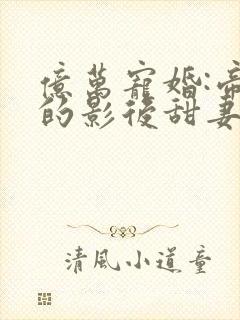 億萬寵婚:帝
的影後甜妻
清風小道童